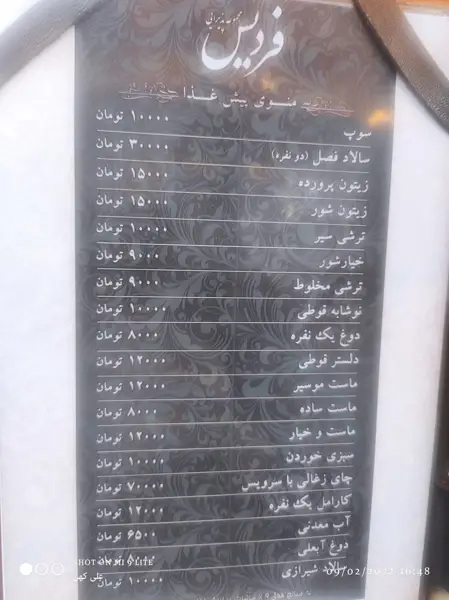 مجموعه پذیرایی
فردیس
منوی پیش غذا
سوپ ۱۰۰۰۰ تومان
سالاد فصل (دو نفره) ۳۰۰۰۰ تومان
زیتون پرورده ۱۵۰۰۰ تومان
زیتون شور ۱۵۰۰۰ تومان
ترشی سیر ۱۰۰۰۰ تومان
خیارشور ۹۰۰۰ تومان
ترشی مخلوط ۹۰۰۰ تومان
نوشابه قوطی ۱۰۰۰۰ تومان
دوغ یک نفره ۸۰۰۰ تومان
دلستر قوطی ۱۲۰۰۰ تومان
ماست موسیر ۱۲۰۰۰ تومان
ماست ساده ۸۰۰۰ تومان
ماست و خیار ۱۲۰۰۰ تومان
سبزی خوردن ۱۰۰۰۰ تومان
چای زغالی با سرویس ۷۰۰۰۰ تومان
کارامل یک نفره ۱۲۰۰۰ تومان
آب معدنی ۶۵۰۰ تومان
دوغ آبعلی ۸۰۰۰ تومان
سالاد شیرازی ۱۰۰۰۰ تومان
SHOT ON MI 9 LITE
علی کهن
16:48